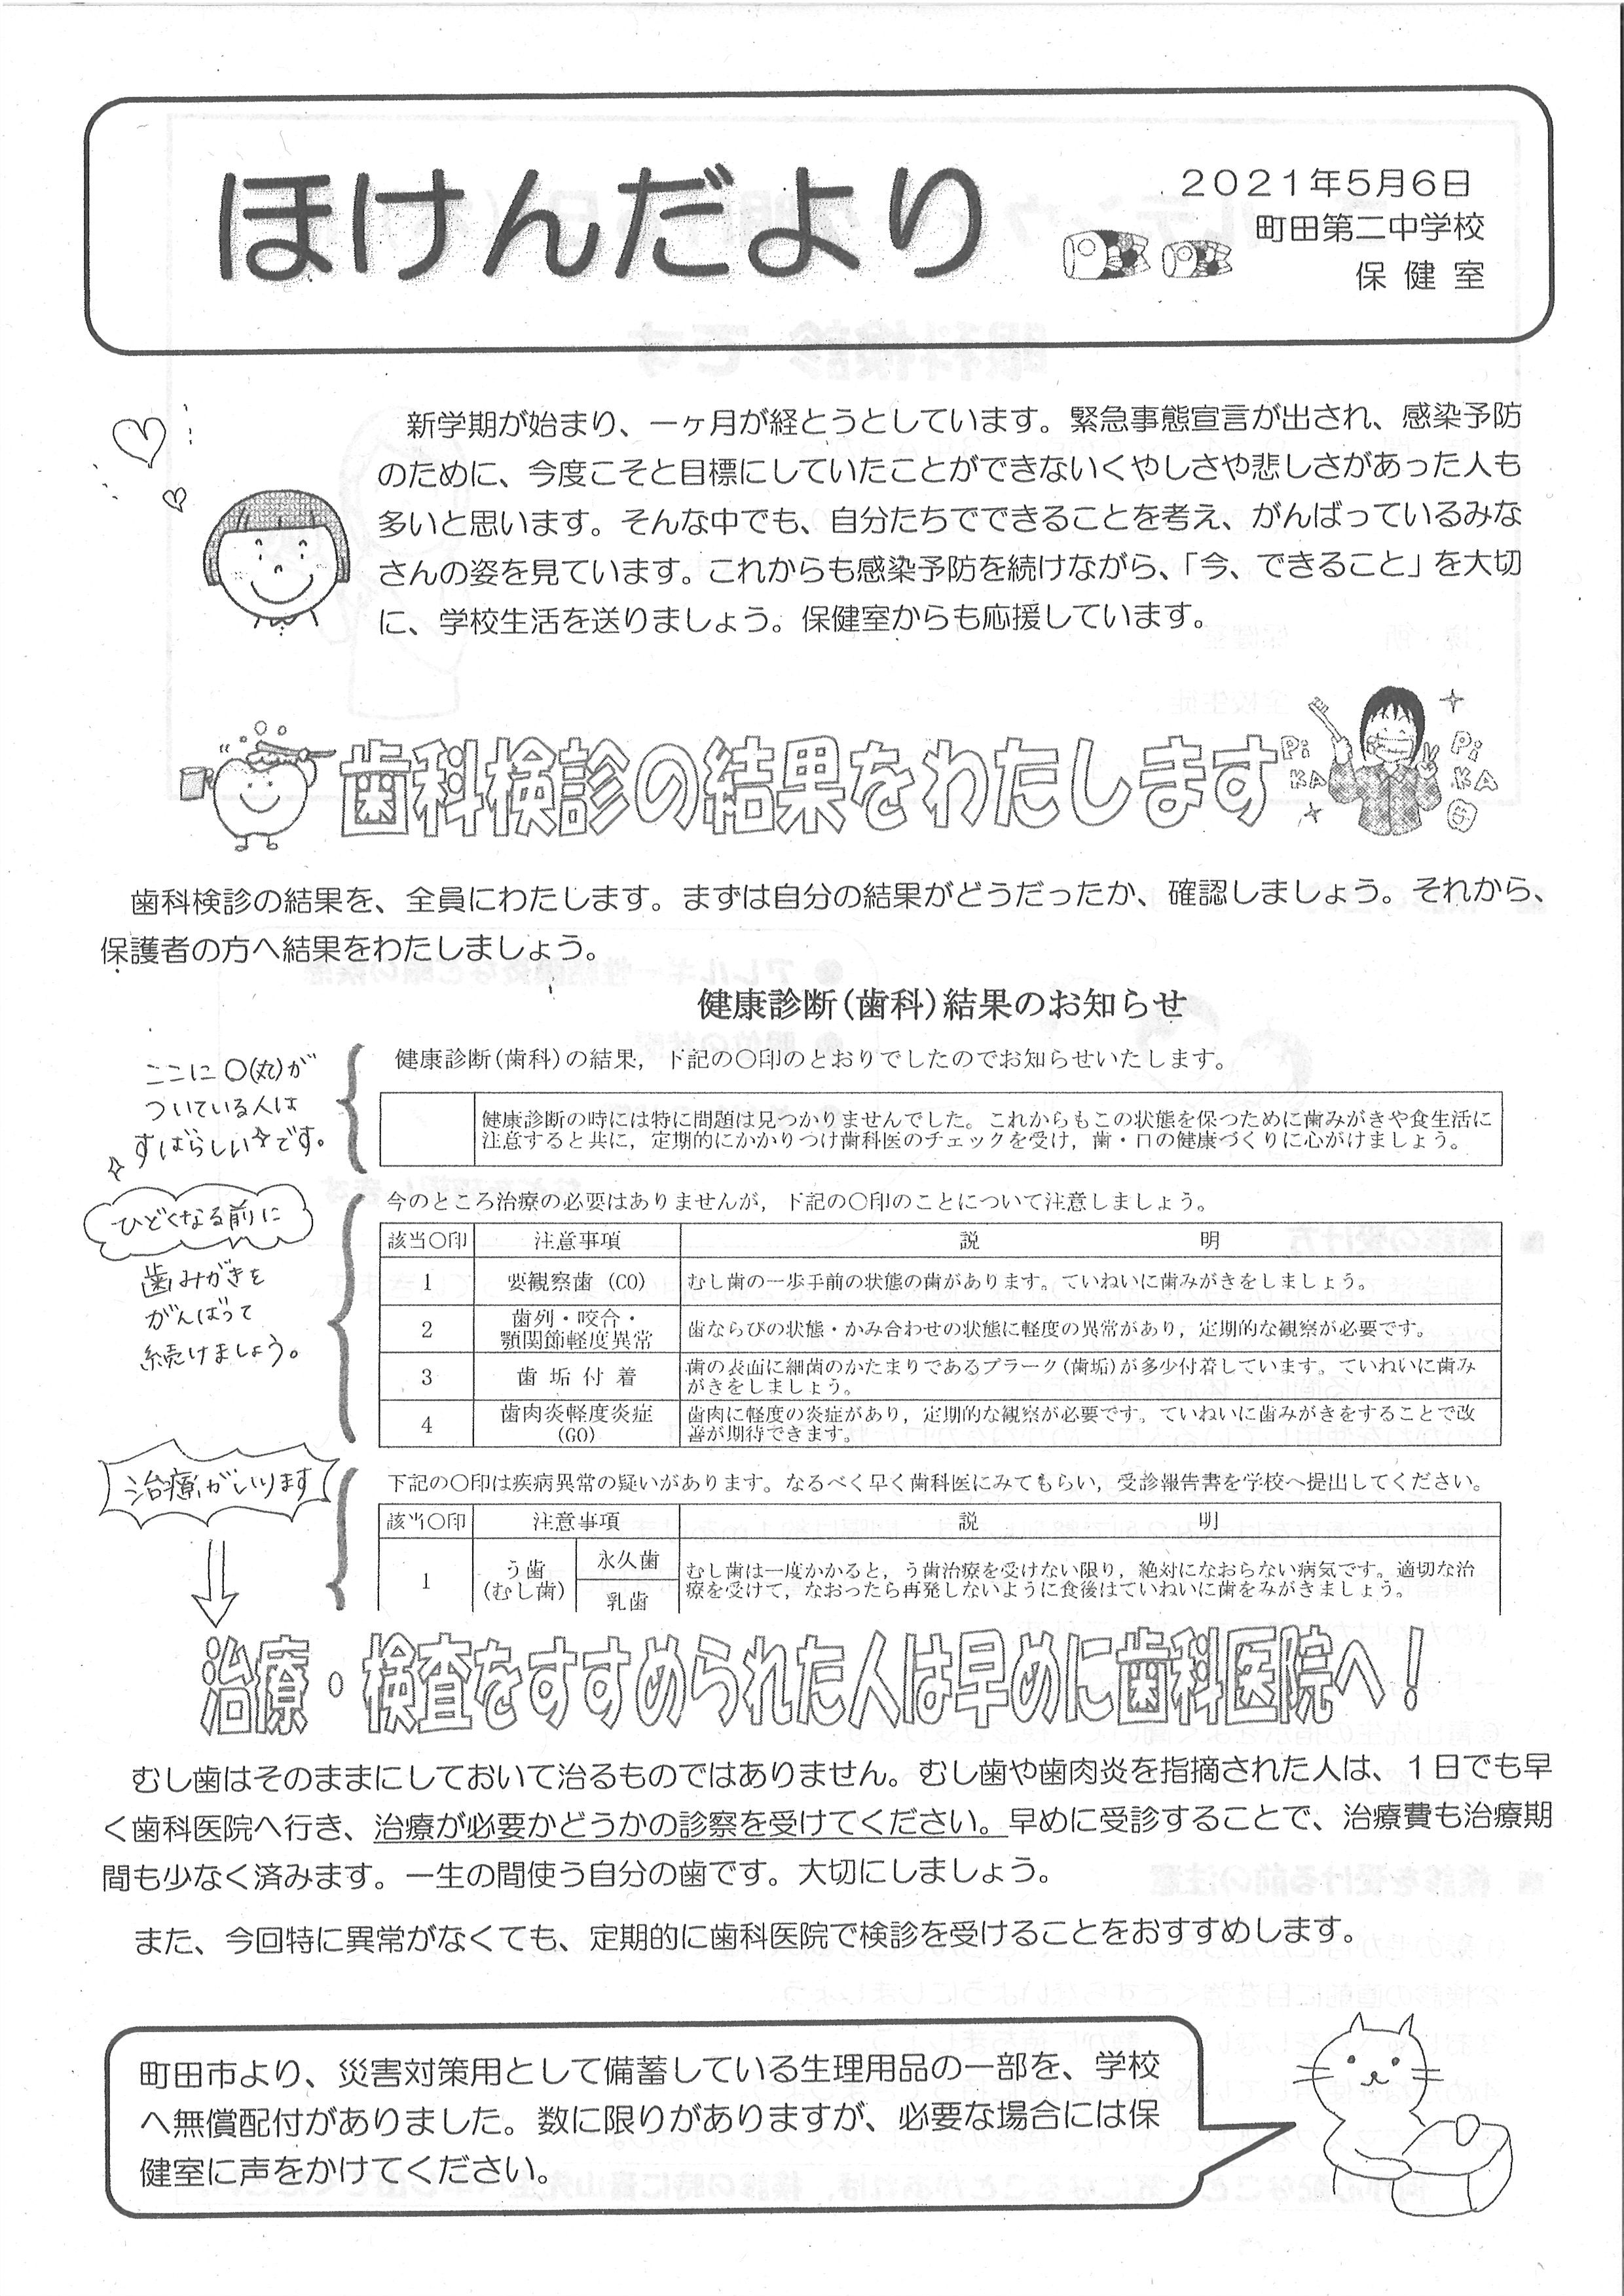 ほけんだより
2021年5月6日
町田第二中学校
保健室
新学期が始まり、一ヶ月が経とうとしています。緊急事態宣言が出され、感染予防
のために、今度こそと目標にしていたことができないくやしさや悲しさがあった人も
多いと思います。そんな中でも、自分たちでできることを考え、がんばっているみな
さんの姿を見ています。これからも感染予防を続けながら、「今、できること」を大切
に、学校生活を送りましょう。保健室からも応援しています。
歯科検診の結果をわたします
Pi
KA
Pi
KA
歯科検診の結果を、全員にわたします。まずは自分の結果がどうだったか、確認しましょう。それから、
保護者の方へ結果をわたしましょう。
健康診断(歯科)結果のお知らせ
ここに〇(丸)が
ついている人は
すばらしい☆です。
健康診断(歯科)の結果,下記の〇印のとおりでしたのでお知らせいたします。
健康診断の時には特に問題は見つかりませんでした。これからもこの状態を保つために歯みがきや食生活に
注意すると共に,定期的にかかりつけ歯科医のチェックを受け,歯・口の健康づくりに心がけましょう。
ひどくなる前に
歯みがきを
がんばって
続けましょう。
今のところ治療の必要はありませんが,下記の〇印のことについて注意しましょう。
該当〇印 注意事項 説明
1 要観察歯(CO) むし歯の一歩手前の状態の歯があります。ていねいに歯みがきをしましょう。
2 歯列・咬合・
顎関節軽度異常 歯ならびの状態・かみ合わせの状態に軽度の異常があり,定期的な観察が必要です。
3 歯垢付着 歯の表面に細菌のかたまりであるプラーク(歯垢)が多少付着しています。ていねいに歯み
がきをしましょう。
4 歯肉炎軽度炎症 歯肉に軽度の炎症があり,定期的な観察が必要です。ていねいに歯みがきをすることで改
(GO) 善が期待できます。
治療がいります
下記の〇印は疾病異常の疑いがあります。なるべく早く歯科医にみてもらい,受診報告書を学校へ提出してください。
該当〇印 注意事項 説明
1 う歯 永久歯 むし歯は一度かかると,う歯治療を受けない限り,絶対になおらない病気です。適切な治
(むし歯) 乳歯 療を受けて,なおったら再発しないように食後はていねいに歯をみがきましょう。
治療・検査をすすめられた人は早めに歯科医院へ!
むし歯はそのままにしておいて治るものではありません。むし歯や歯肉炎を指摘された人は、1日でも早
く歯科医院へ行き、治療が必要かどうかの診察を受けてください。早めに受診することで、治療費も治療期
間も少なく済みます。一生の間使う自分の歯です。大切にしましょう。
また、今回特に異常がなくても、定期的に歯科医院で検診を受けることをおすすめします。
町田市より、災害対策用として備蓄している生理用品の一部を、学校
へ無償配付がありました。数に限りがありますが、必要な場合には保
健室に声をかけてください。